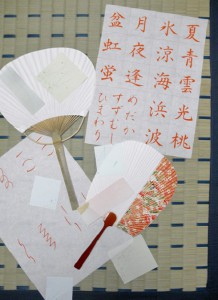 夏青雲光桃
氷涼海浜波
月夜逢
めだか
すずむし
盆虹蛍
ひまわり